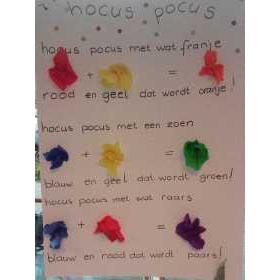 hocus pocus
hocus pocus met wat franje
+ =
rood en geel dat wordt oranje!
hocus pocus met een zoen
+ =
blauw en geel dat wordt groen!
hocus pocus met wat raars
+ =
blauw en rood dat wordt paars!